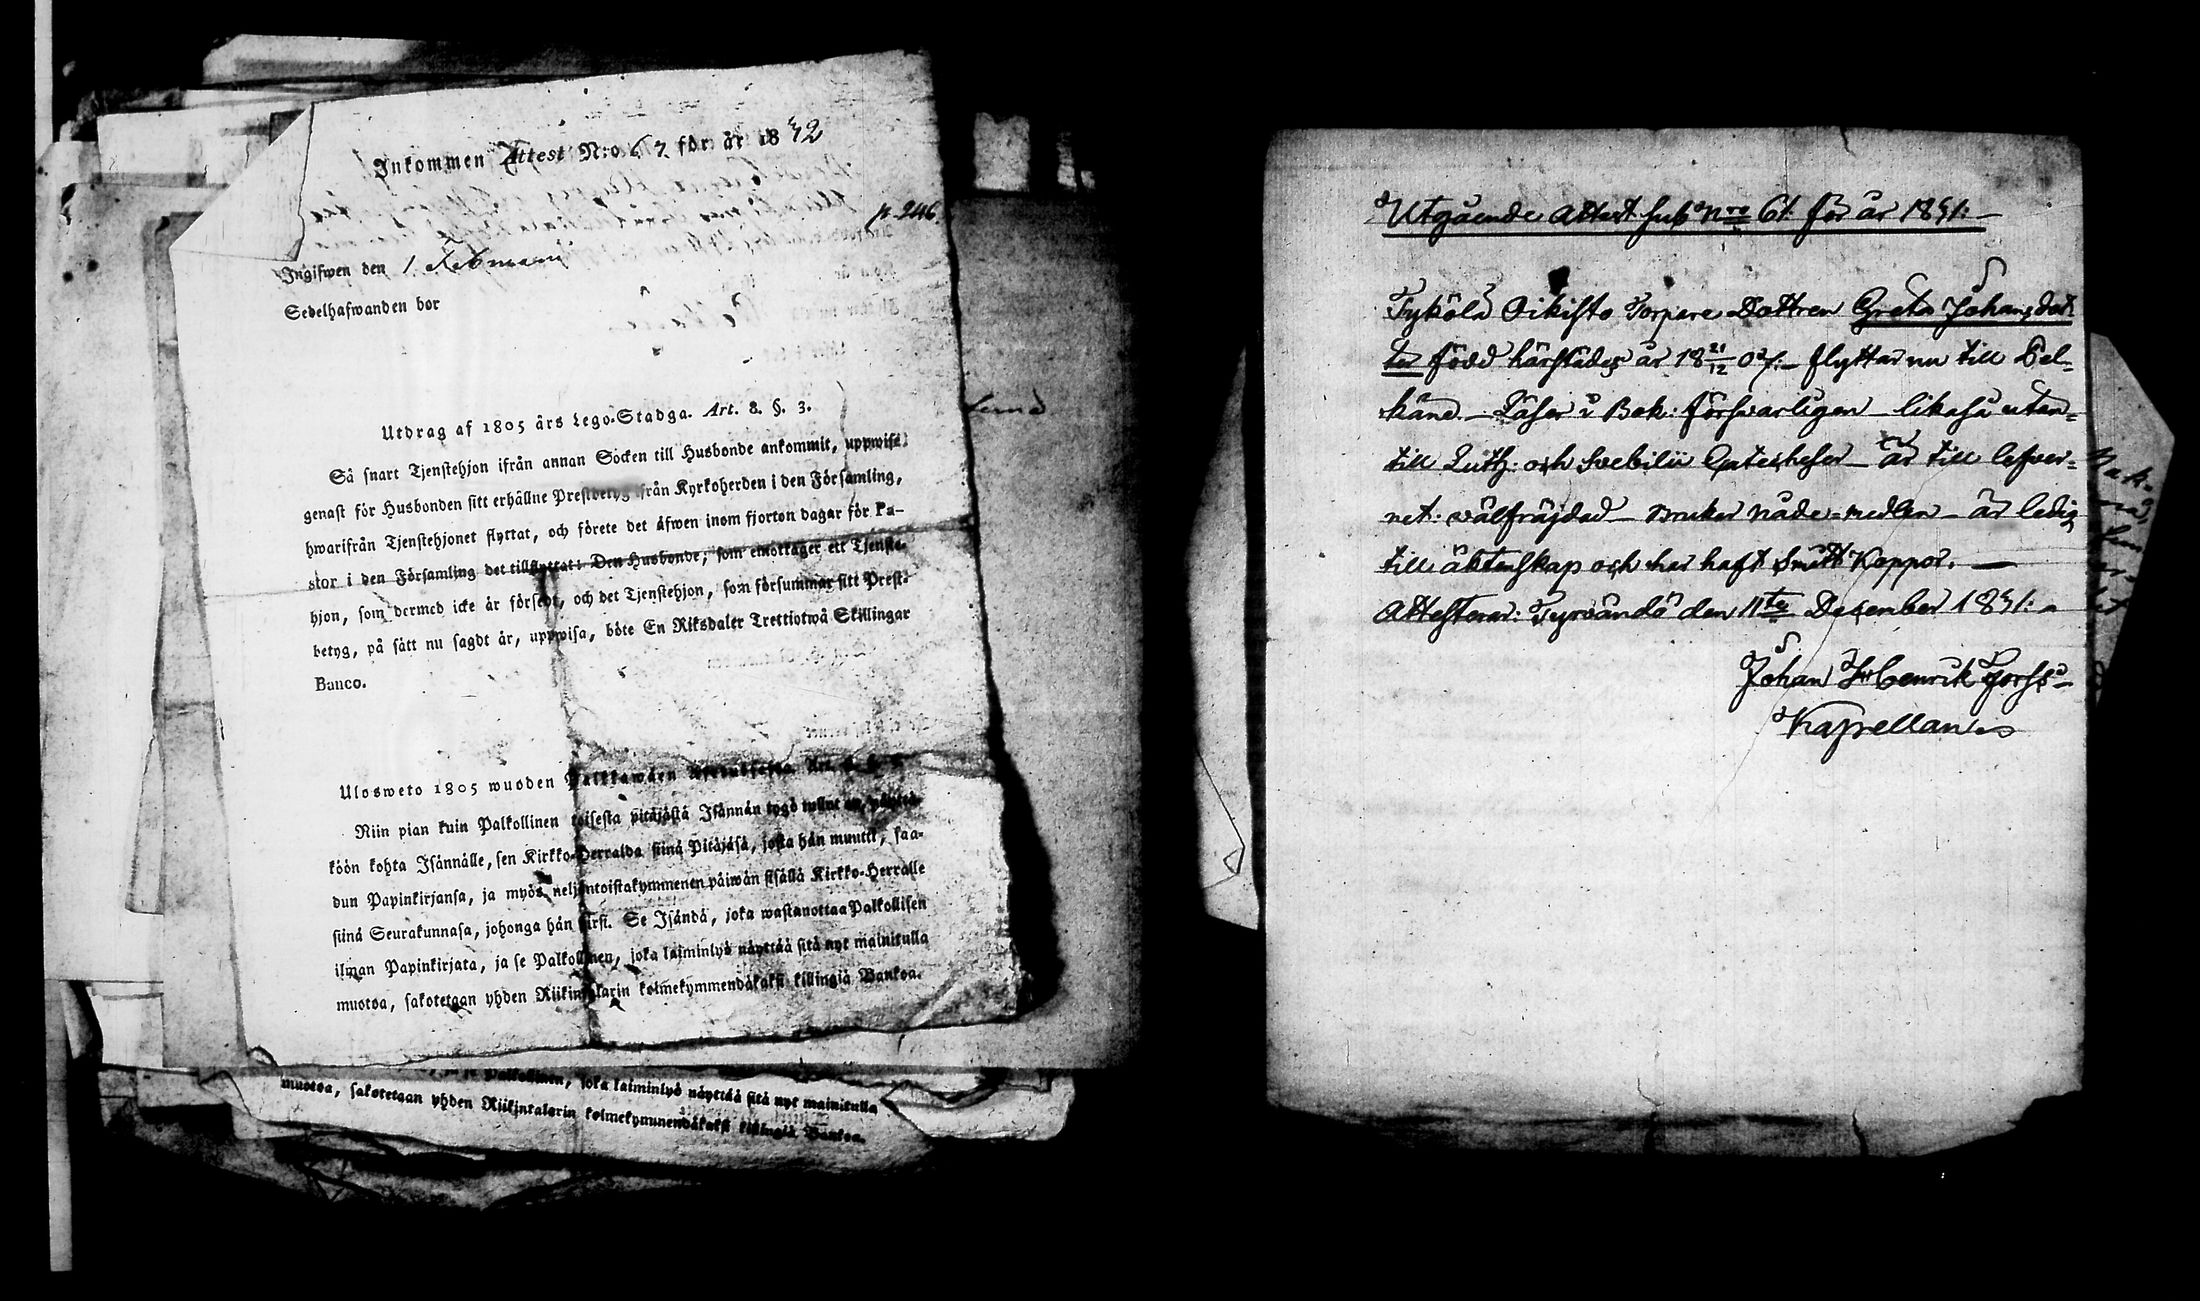 Inkommen Attest N:o 67 för år 1842
p. 246
Ingifwen den 1 Februarii
Sedelhafwanden bor
Utdrag af 1805 års Lego-Stadga. Art. 8. §. 3.
Så snart Tjenstehjon ifrån annan Socken till Husbonde ankommit, uppwise
genast för Husbonden sitt erhållne Prestbetyg ifrån Kyrkoherden i den Församling,
hwarifrån Tjenstehjonet flyttat, och förete det äfwen inom fjorton dagar för Pa-
stor i den Församling det tillflyttat: Den Husbonde, som emottager ett Tjenste-
hjon, som dermed icke är försedt, och det Tjenstehjon, som försummar sitt Prest-
betyg, på sätt nu sagdt är, uppwisa, böte En Riksdaler Trettiotwå Skillingar
Banco.
Ulosweto 1805 wuoden Palkkawäen
Niin pian kuin Palkollinen toisesta pitäjästä Isännän tygö tullut on, näyttä-
köön kohta Isännälle, sen Kirkko-Herralda siinä Pitäjäsä, josta hän muutti, saa-
dun Papinkirjansa, ja myös neljäntoistakymmenen päiwän sisällä Kirkko-Herralle
siinä Seurakunnasa, johonga hän siirsi. Se Isändä, joka wastanottaa Palkollisen
ilman Papinkirjata, ja se Palkollinen, joka laiminlyö näyttää sitä nyt mainitulla
muotoa, sakotetaan yhden Riikintalarin kolmekymmendäkaksi killingiä Bankoa.
Palkollinen, joka laiminlyö näyttää sitä nyt mainitulla
muotoa, sakotetaan yhden Riikintalarin kolmekymmendäkaksi killingiä Bankoa.
Utgående Attest sub Nro 61. för år 1841:
Tyköla Oikisto Torpare Dottren Greta Johansdot
ter född härstädes år 18 21/12 07: flyttar nu till Pel-
käne. Läser i Bok: försvarligen likaså utan-
till Luth: och Svebilii Catecheser är till lefver-
net: välfräjdad bruker nåde-medlen är ledig
till äktenskap och har haft Smitt Koppor.
Attesterar: Tyrvändö den 11te December 1841:
Johan Henrik Forss
Kapellan